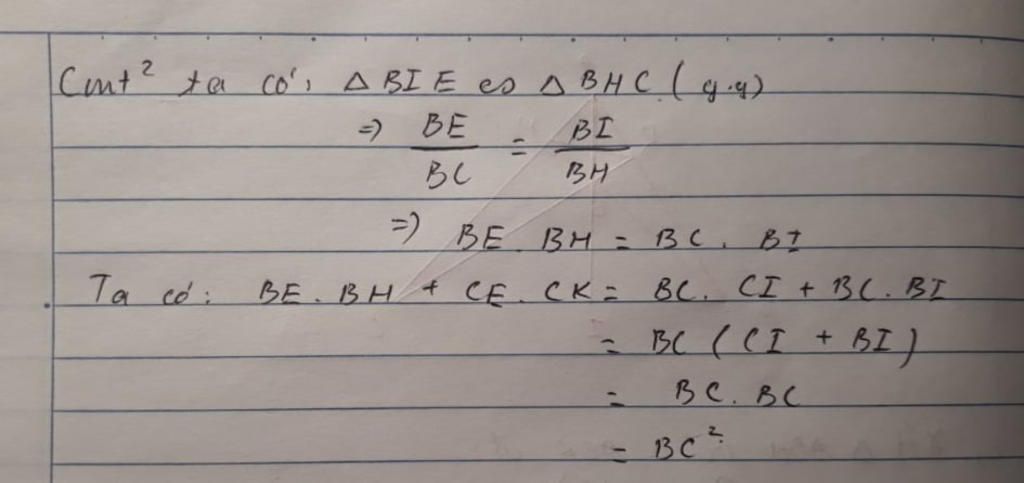 Cmt² ta có: △BIE ∽ △BHC (g.g)
=> BE/BC = BI/BH
=> BE . BH = BC . BI
Ta có: BE . BH + CE . CK = BC . CI + BC . BI
= BC (CI + BI)
= BC . BC
= BC²